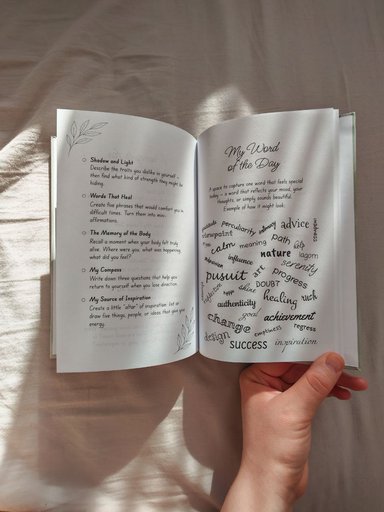 Shadow and Light
Describe the traits you dislike in yourself —
then find what kind of strength they might be
hiding.
Words That Heal
Create five phrases that would comfort you in
difficult times. Turn them into mini-
affirmations.
The Memory of the Body
Recall a moment when your body felt truly
alive. Where were you, what was happening,
what did you feel?
My Compass
Write down three questions that help you
return to yourself when you lose direction.
My Source of Inspiration
Create a little "altar" of inspiration: list or
draw five things, people, or ideas that give you
energy.
My Word
of the Day
A space to capture one word that feels special
today — a word that reflects your mood, your
thoughts, or simply sounds beautiful.
Example of how it might look:
peculiarity memory advice
viewpoint
calm meaning path help
nature lagom
influence serenity
pursuit art progress
DOUBT
shine
authenticity healing luck
goal
change achievement
emptiness regress
design success inspiration